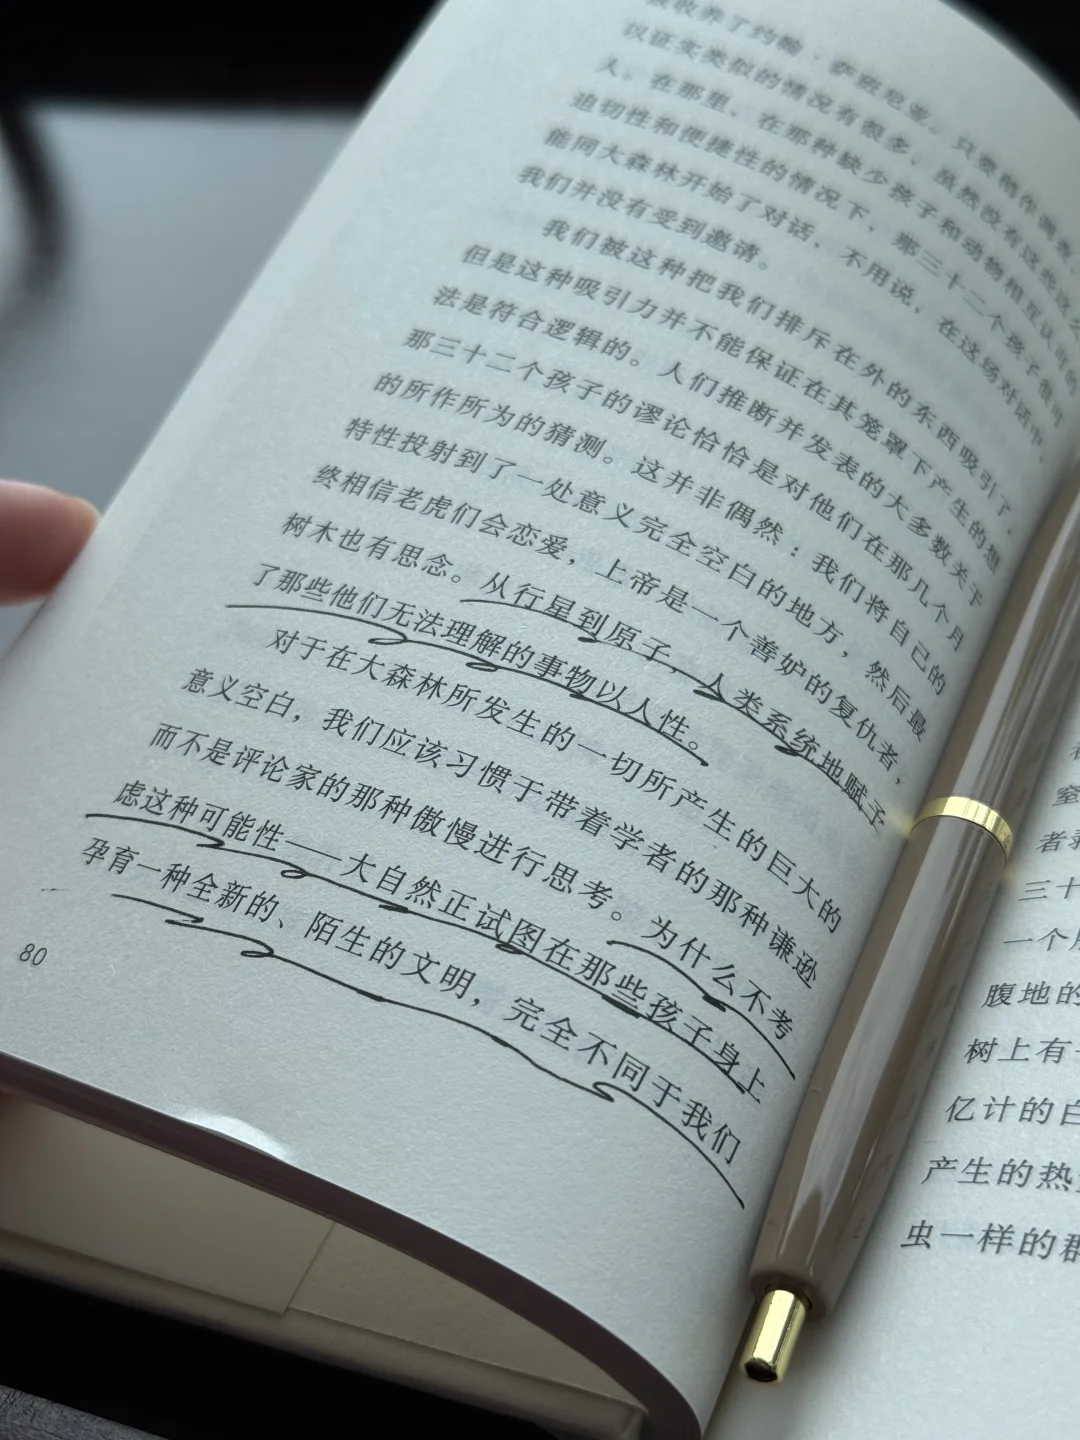 被收养了约翰·萨班尼亚。只要稍作调查,
以证实类似的情况有很多,虽然没有这些这么
人。在那里,在那种缺少孩子和动物相互认可的
迫切性和便捷性的情况下,那三十二个孩子很可
能同大森林开始了对话,不用说,在这场对话中,
我们并没有受到邀请。
我们被这种把我们排斥在外的东西吸引了,
但是这种吸引力并不能保证在其笼罩下产生的想
法是符合逻辑的。人们推断并发表的大多数关于
那三十二个孩子的谬论恰恰是对他们在那几个月
的所作所为的猜测。这并非偶然:我们将自己的
特性投射到了一处意义完全空白的地方,然后最
终相信老虎们会恋爱,上帝是一个善妒的复仇者,
树木也有思念。从行星到原子,人类系统地赋予
了那些他们无法理解的事物以人性。
对于在大森林所发生的一切所产生的巨大的
意义空白,我们应该习惯于带着学者的那种谦逊
而不是评论家的那种傲慢进行思考。为什么不考
虑这种可能性——大自然正试图在那些孩子身上
孕育一种全新的、陌生的文明,完全不同于我们
80
窒
者
三十
一个
腹地的
树上有
亿计的白
产生的热
虫一样的群